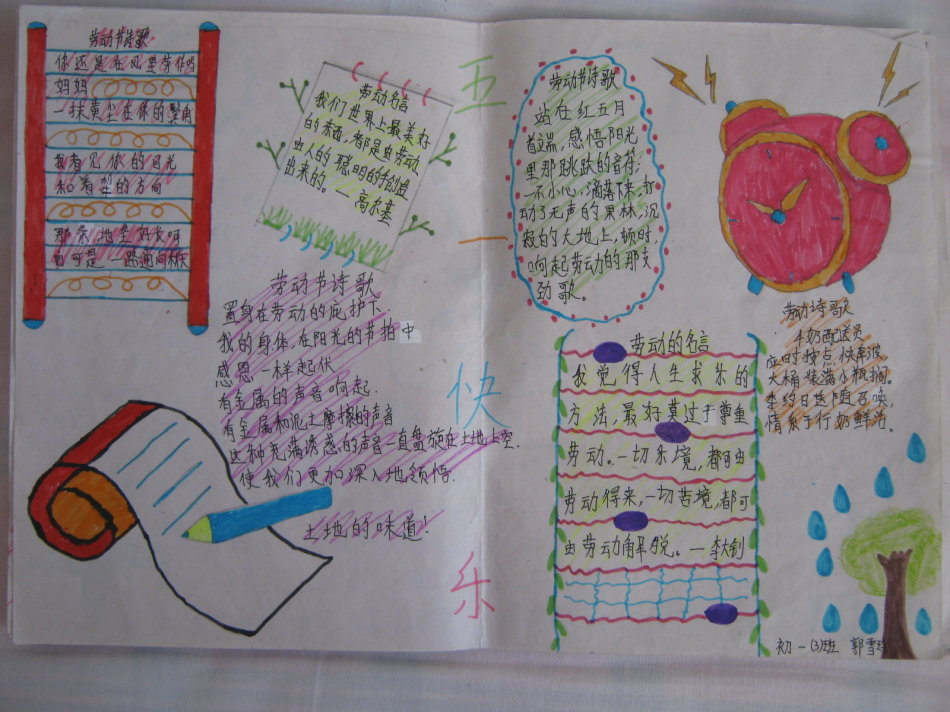 劳动节诗歌
你还是在风里劳作吗
妈妈
一抹黄尘在你的鬓角
我看见你的目光
和着犁的方向
那条地垄好长啊
劳动名言
我们世界上最美好
的东西,都是由劳动
由人的聪明的手创造
出来的。
高尔基
劳动节诗歌
置身在劳动的庇护下
我的身体,在阳光的节拍中
感恩一样起伏
有金属的声音响起
有金属和泥土摩擦的声音
这种充满诱惑的声音一直盘旋在土地上空.
使我们更加深入地领悟.
土地的味道!
五
一
快
乐
劳动节诗歌
站在红五月
首端,感悟阳光
里那跳跃的音符;
一不小心,滴落下来,打
动了无声的果林,沉
寂的大地上,顿时,
响起劳动的那支
劲歌。
劳动的名言
我觉得人生求乐的
方法,最好莫过于尊重
劳动。一切乐境,都可由
劳动得来,一切苦境,都可
由劳动解脱。一李大钊
劳动诗歌
牛奶配送员
应时按点快车波
大桶装满小瓶搁。
季约日送随召唤,
情系千行奶鲜活。
初一(3)班 郭雪